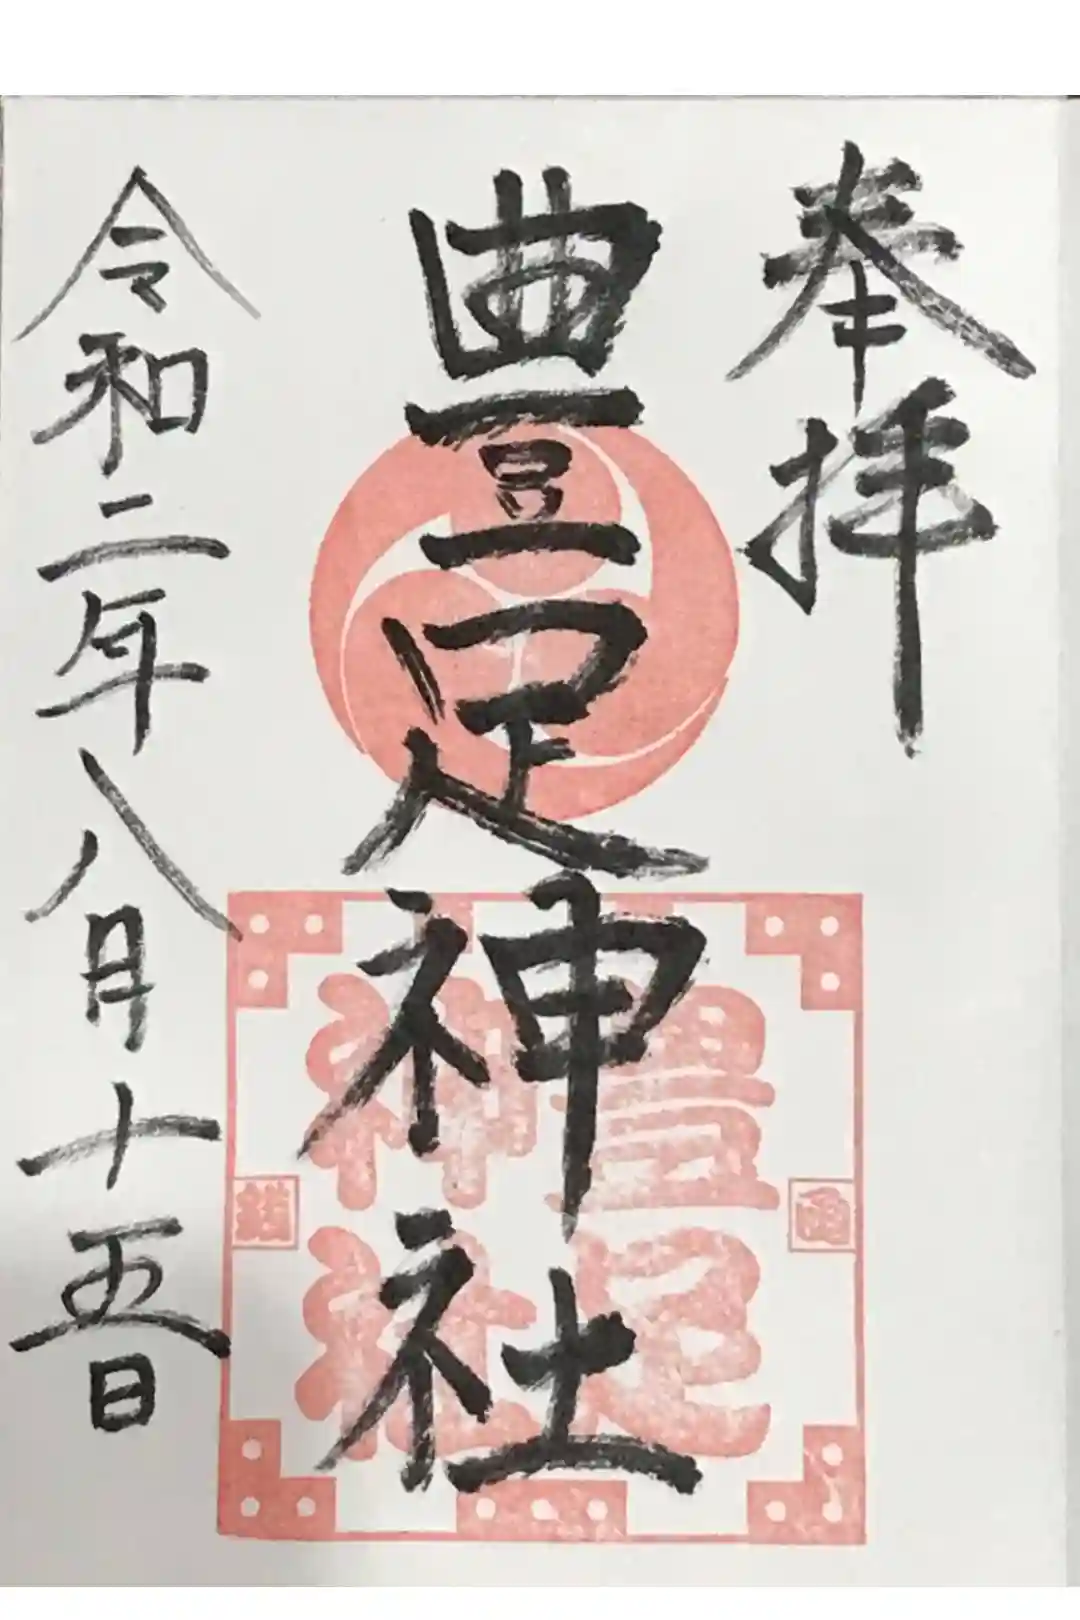 奉拝
豊足神社
令和二年八月十五日
豊足
神社